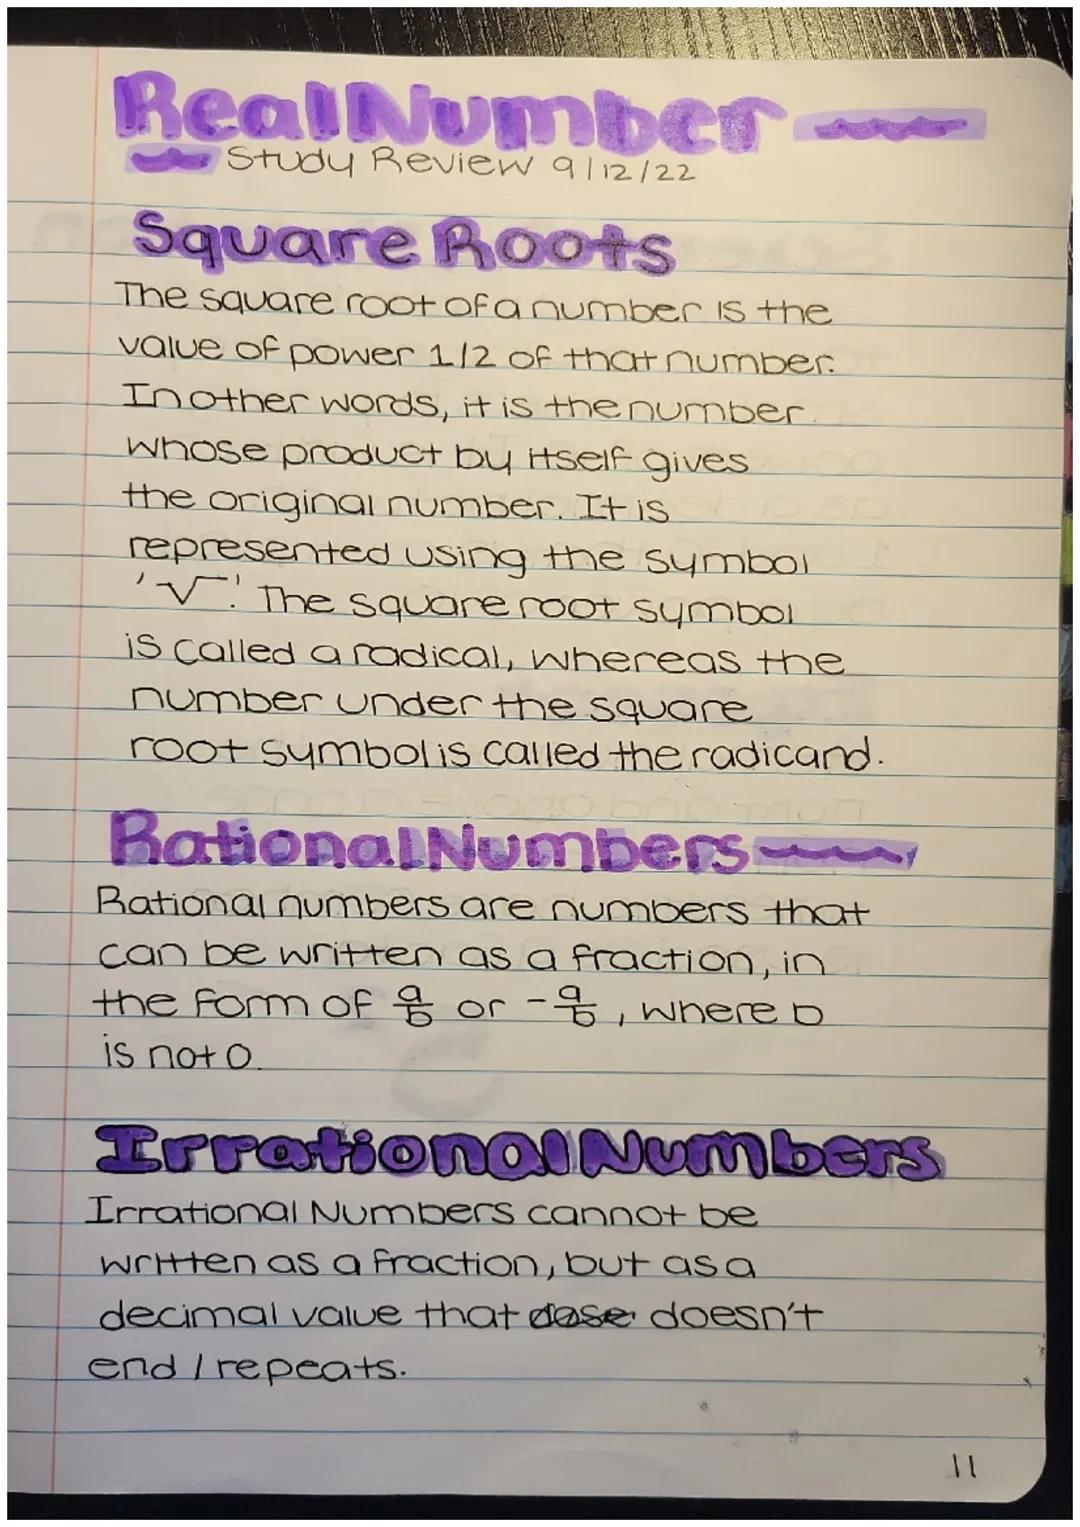 Real Number
Study Review 9/12/22
Square Roots
The square root of a number is the
value of power 1/2 of that number.
In other words, it is the number
whose product by itself gives
the original number. It is
represented using the symbol
'√'. The square root symbol
is called a radical, whereas the
number under the square
root symbol is called the radicand.
Rational Numbers
Rational numbers are numbers that
can be written as a fraction, in
the form of a/b or -a/b, where b
is not 0.
Irrational Numbers
Irrational Numbers cannot be
written as a fraction, but as a
decimal value that dose doesn't
end / repeats.
11